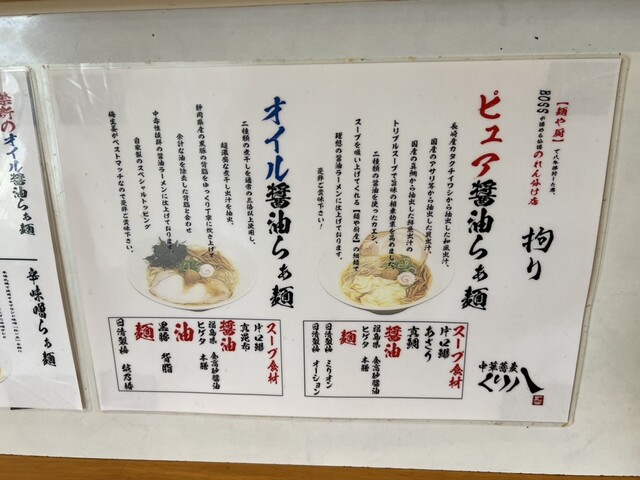 【麺や厨】で八年修行した僕、
BOSSが認める公認のれん分け店
拘り
中華蕎麦
くり八
ピュア醤油らぁ麺
長崎産カタクチイワシから抽出した和風出汁、
国産のアサリ等から抽出した貝出汁、
国産の真鯛から抽出した鮮魚出汁の
トリプルスープで旨味の相乗効果を高めました。
二種類の醤油を使ったカエシ、
スープを吸い上げてくれる【麺や厨産】の細麺で
理想の醤油ラーメンに仕上げております。
是非ご賞味下さい！
スープ食材
片口鰯
あさり
真鯛
醤油
福島県 金高砂醤油
ヒゲタ 本膳
麺
日清製粉 ミリオン
日清製粉 オーション
オイル醤油らぁ麺
二種類の煮干しを通常の三倍以上使用し、
超濃密な煮干し出汁を抽出。
静岡県産の黒豚の背脂をゆっくり丁寧に炊き上げて
余計な油を除去した背脂と合わせ
中毒性抜群の醤油ラーメンに仕上げております。
自家製のスペシャルトッピング
梅生姜がベストマッチなので是非ご賞味下さい。
スープ食材
片口鰯
真昆布
醤油
福島県 金高砂醤油
ヒゲタ 本膳
油
黒豚 背脂
麺
日清製粉
のオイル醤油らぁ麺
辛味噌らぁ麺